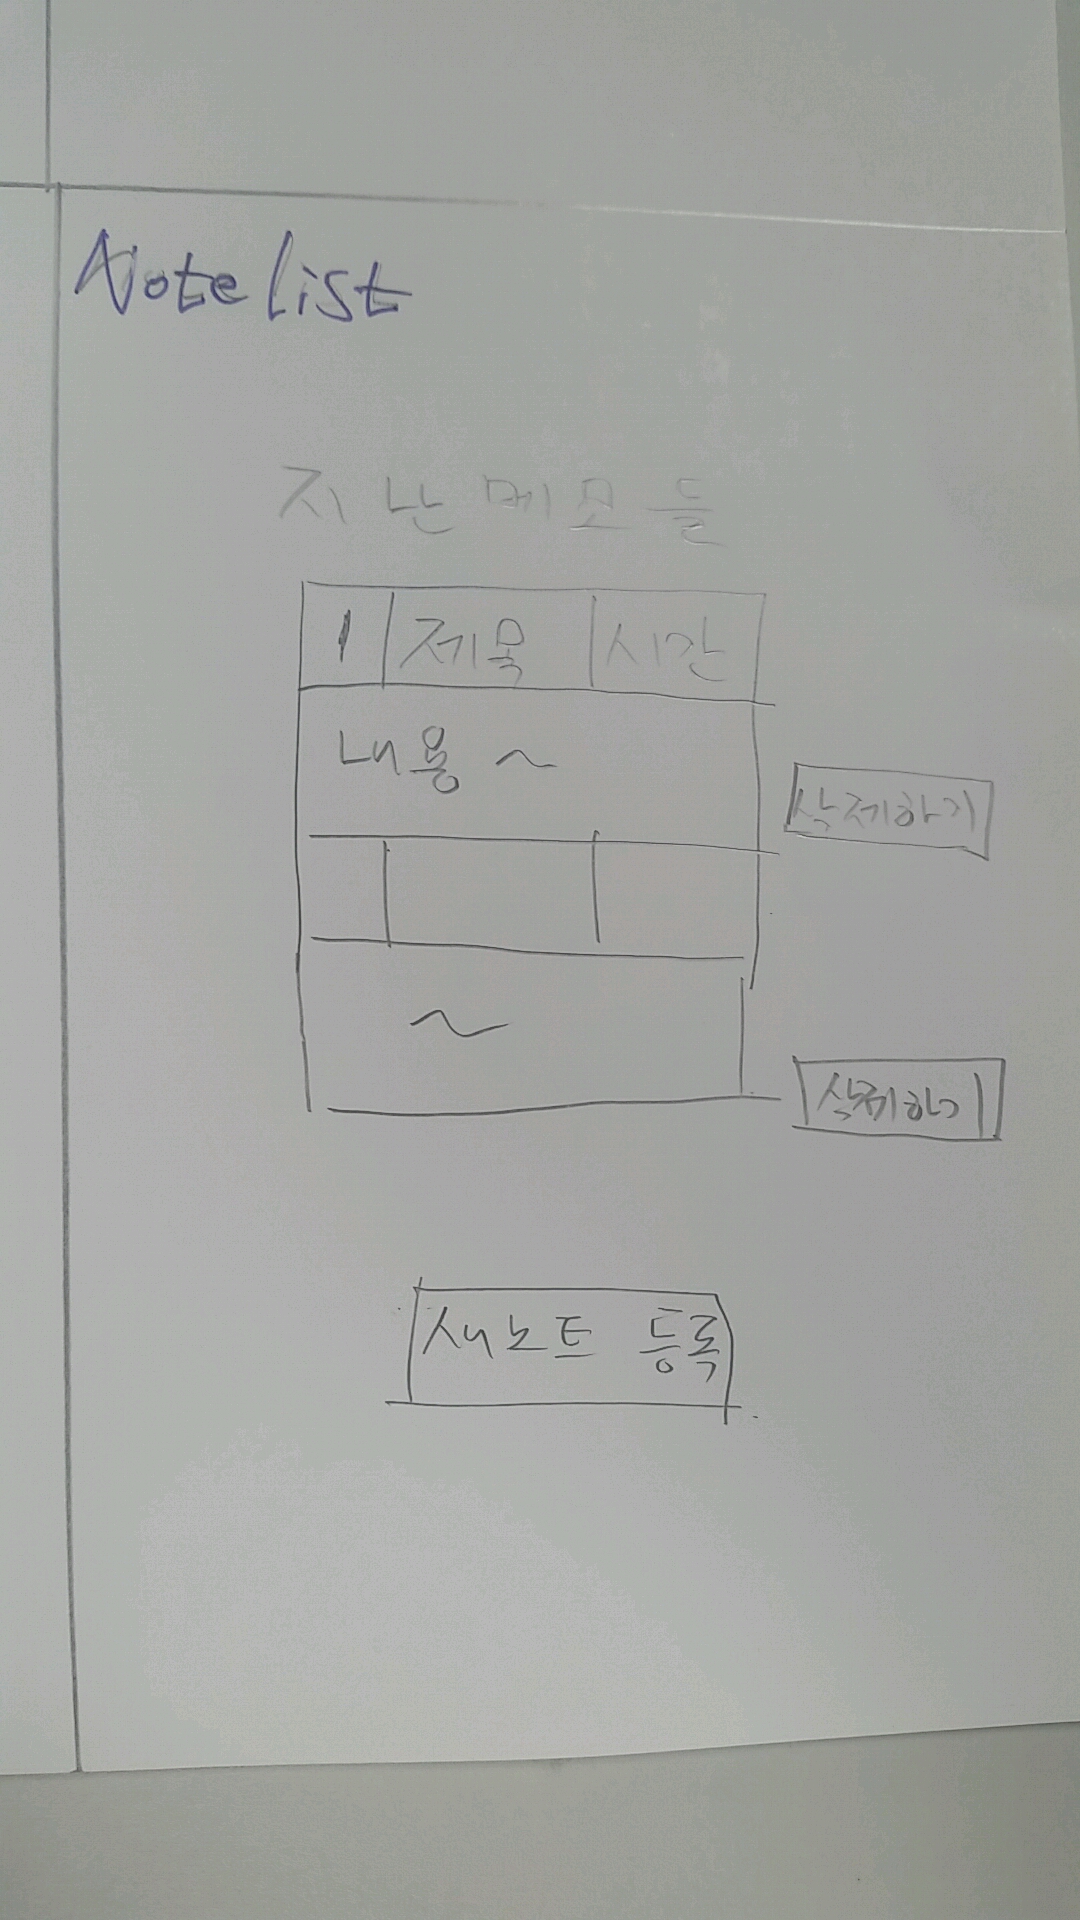 Note list
지난 메모들
1 제목 시간
내용 ~
삭제하기
~
삭제하기
새노트 등록